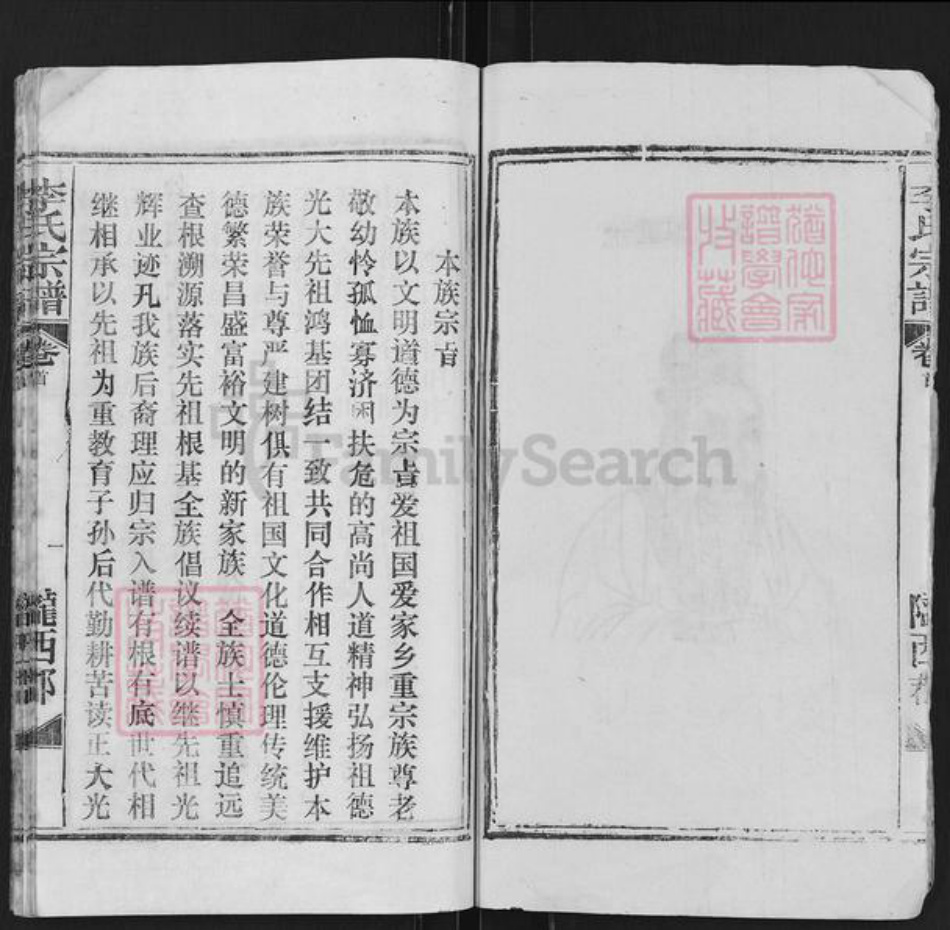 李氏宗谱
卷首
陇西郡
猶他家譜學會收藏
本族宗旨
本族以文明道德为宗旨爱祖国爱家乡重宗族尊老
敬幼怜孤恤寡济困扶危的高尚人道精神弘扬祖德
光大先祖鸿基团结一致共同合作相互支援维护本
族荣誉与尊严建树俱有祖国文化道德伦理传统美
德繁荣昌盛富裕文明的新家族 全族士慎重追远
查根溯源落实先祖根基全族倡议续谱以继先祖光
辉业迹孔我族后裔理应归宗入谱有根有底世代相
继相承以先祖为重教育子孙后代勤耕苦读正大光
李氏宗谱
卷首
一
隴西郡
FamilySearch